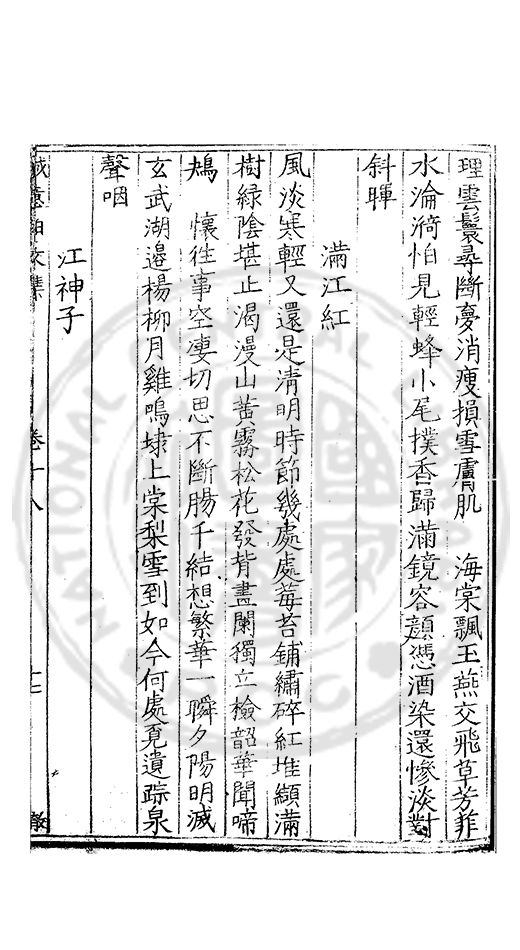 理雲鬟尋斷夢消瘦損雪膚肌　海棠飄玉燕交飛草芳菲
水淪漪怕見輕蜂小尾撲香歸滿鏡容顏憑酒染還慘淡對
斜暉
滿江紅
風淡寒輕又還是清明時節幾處處莓苔鋪繡碎紅堆纈滿
樹綠陰堪止渴漫山黃霧松花發背畫闌獨立檢韶華聞啼
鴂　懷往事空凄切思不斷腸千結想繁華一瞬夕陽明滅
玄武湖邉楊柳月雞鳴埭上棠梨雪到如今何處覓遺踪泉
聲咽
江神子
誠意伯文集　卷十八